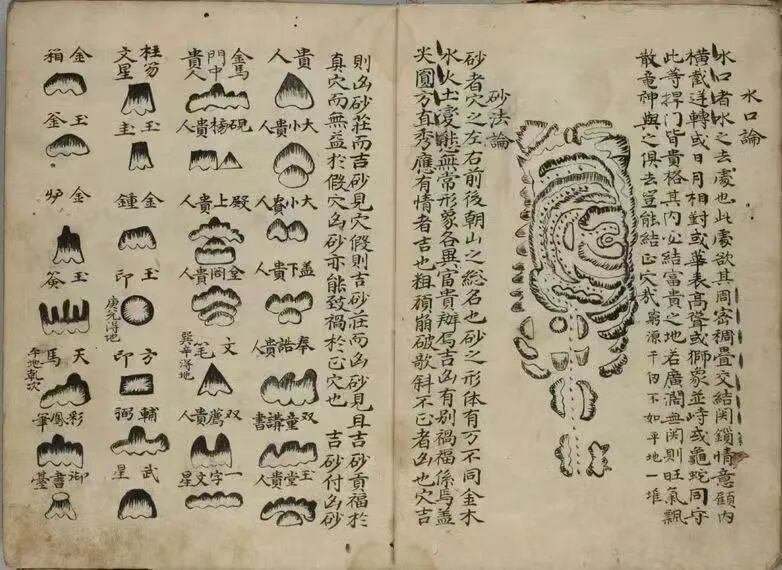 水口論
水口者水之去處也此處欲其周密稠疊交結関鎖情意顧內
橫截逆轉或日月相對或華表高聳或獅象並峙或龜蛇同守
此等捍门皆貴格其內必結富貴之地若廣濶無関則旺氣飄
散竜神與之俱去豈能結正穴哉 窮源千仞不如平地一堆
砂法論
砂者穴之左右前後朝山之総名也砂之形体有万不同金木
水火土変態無常形象各異富貴辨焉吉凶有别禍福係焉盖
尖圓方直秀應有情者吉也粗頑崩破欹斜不正者凶也穴吉
則凶砂莊而吉砂見穴假則吉砂莊而凶砂見且吉砂貢福於
真穴而無益於假穴凶砂亦能致禍於正穴也 吉砂付凶砂
貴人
大小貴人
大小貴人
盖下貴人
奉誥貴人
双童講書
玉堂貴人
金馬門中貴人
硯楊貴人
殿上貴人
貴人
文笔
巽辛得地
双薦貴人
一字文星
柱笏文星
玉圭
金鍾
玉印
庚兑得地
方印
輔弼
武星
金箱
玉釜
金炉
玉
天馬
午地乾次
彩鳳筆
御書臺